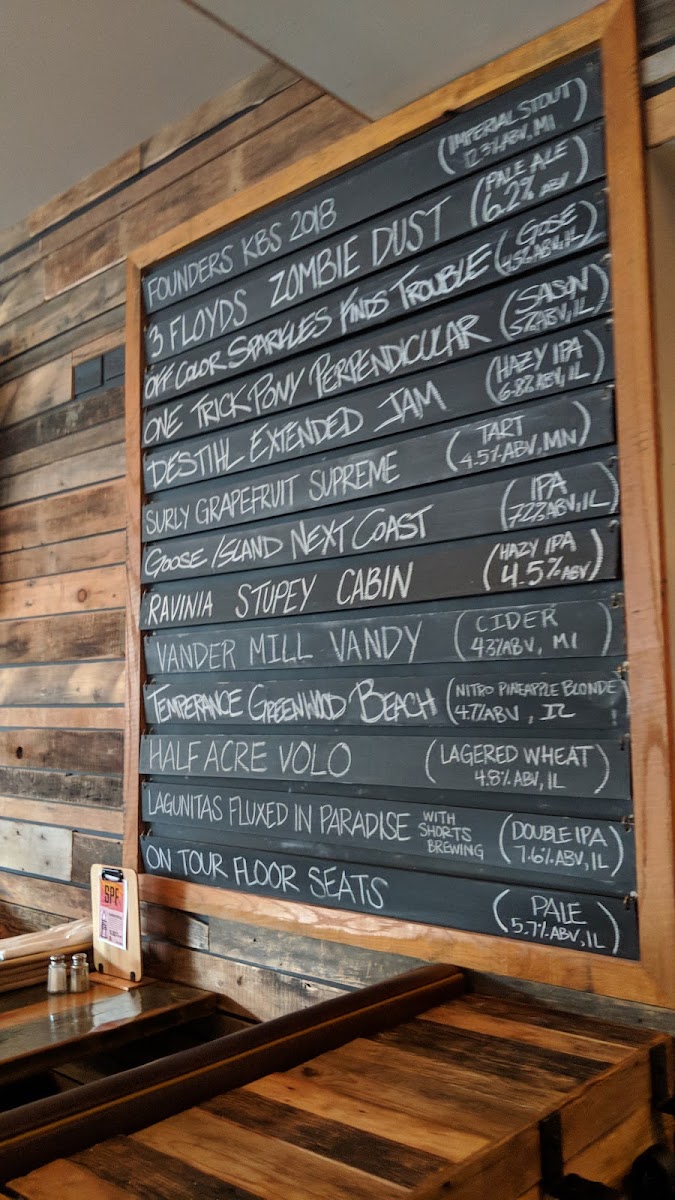 FOUNDERS KBS 2018 (IMPERIAL STOUT)
12.3% ABV, MI
3 FLOYDS ZOMBIE DUST (PALE ALE)
6.2% ABV
OFF COLOR SPARKLES FINDS TROUBLE (GOSE
4.5% ABV, IL)
ONE TRICK PONY PERPENDICULAR (SASON
5% ABV, IL)
DESTIHL EXTENDED JAM (HAZY IPA
6.8% ABV, IL)
SURLY GRAPEFRUIT SUPREME (TART
4.5% ABV, MN)
GOOSE ISLAND NEXT COAST (IPA
7.2% ABV, IL)
RAVINIA STUPEY CABIN (HAZY IPA
4.5% ABV)
VANDER MILL VANDY (CIDER
4.3% ABV, MI)
TEMPERANCE GREENWOOD BEACH (NITRO PINEAPPLE BLONDE
4.7% ABV, IL)
HALF ACRE VOLO (LAGERED WHEAT
4.8% ABV, IL)
LAGUNITAS FLUXED IN PARADISE WITH SHORTS BREWING (DOUBLE IPA
7.6% ABV, IL)
ON TOUR FLOOR SEATS (PALE
5.7% ABV, IL)
SPF